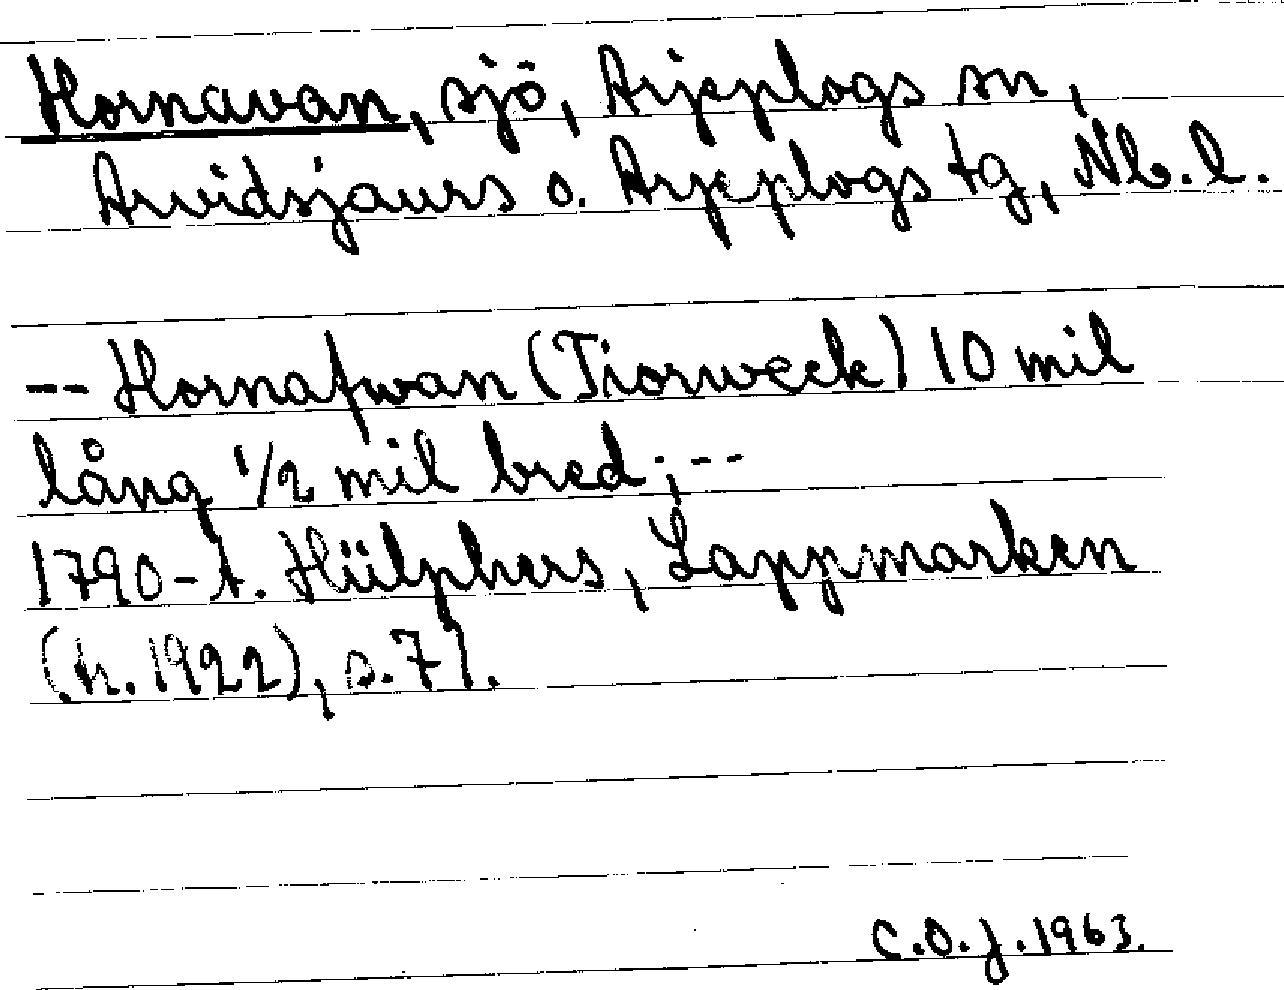 Hornavan, sjö, Arjeplogs sn,
Arvidsjaurs o. Arjeplogs tg, Nb. l.
-- Hornafwan (Tiorweck) 10 mil
lång 1/2 mil bred; --
1790-t. Hülphers, Lappmarken
(tr. 1922), s. 71.
C.O.J. 1963.